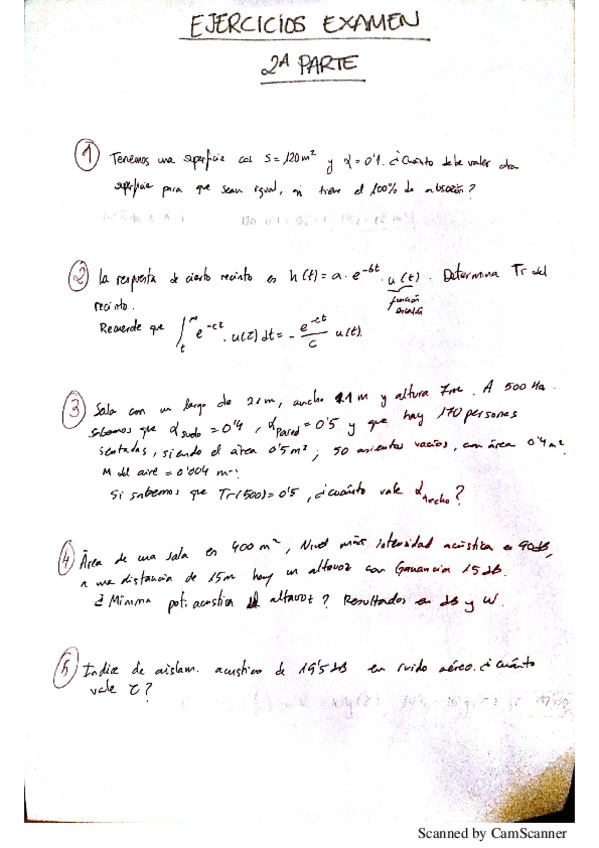 EJERCICIOS EXAMEN
2ª PARTE
① Tenemos una superficie con S = 120 m² y α = 0'1. ¿Cuánto debe valer otra
superficie para que sean igual, si tiene el 100% de absorción?
② La respuesta de cierto recinto es h(t) = a · e^-bt · u(t). Determina Tr del
función
escalón
recinto.
Recuerde que ∫_t^∞ e^-cτ · u(τ) dτ = - e^-ct / c u(t).
③ Sala con un largo de 21m, ancho 11m y altura 7m. A 500 Hz.
Sabemos que α suelo = 0'4, α pared = 0'5 y que hay 170 personas
sentadas, siendo el área 0'5 m²; 50 asientos vacíos, con área 0'4 m².
M del aire = 0'004 m⁻¹
Si sabemos que Tr(500) = 0'5, ¿cuánto vale α techo?
④ Área de una sala es 400 m², Nivel máx intensidad acústica es 90 dB,
a una distancia de 15m hay un altavoz con Ganancia 15 dB.
¿Mínima pot. acústica del altavoz? Resultados en dB y W.
⑤ Indice de aislam. acustico de 19'5 dB en ruido aéreo. ¿Cuánto
vale τ?
Scanned by CamScanner